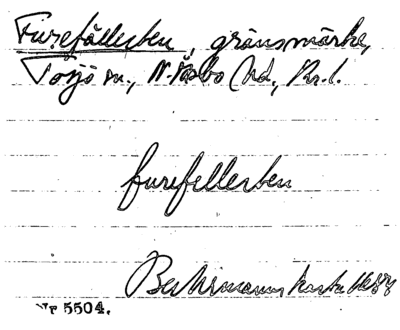 Furefällerben, gränsmärke,
Torjö sn., N. Åsbo hd., Kr. l.
furefellerben
Buhrmanns karta 1684
Vp 5504.